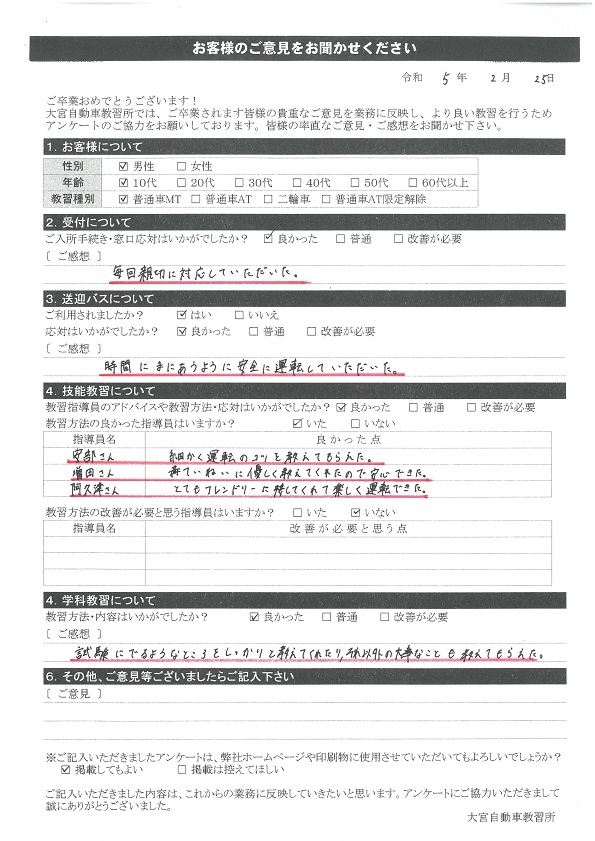 お客様のご意見をお聞かせください
令和 5 年 2 月 25日
ご卒業おめでとうございます!
大宮自動車教習所では、ご卒業されます皆様の貴重なご意見を業務に反映し、より良い教習を行うため
アンケートのご協力をお願いしております。皆様の率直なご意見・ご感想をお聞かせ下さい。
1. お客様について
性別 ☑ 男性 □ 女性
年齢 ☑ 10代 □ 20代 □ 30代 □ 40代 □ 50代 □ 60代以上
教習種別 ☑ 普通車MT □ 普通車AT □ 二輪車 □ 普通車AT限定解除
2. 受付について
ご入所手続き・窓口応対はいかがでしたか? ☑ 良かった □ 普通 □ 改善が必要
〔 ご感想 〕
毎回親切に対応していただいた。
3. 送迎バスについて
ご利用されましたか? ☑ はい □ いいえ
応対はいかがでしたか? ☑ 良かった □ 普通 □ 改善が必要
〔 ご感想 〕
時間にまにあうように安全に運転していただいた。
4. 技能教習について
教習指導員のアドバイスや教習方法・応対はいかがでしたか? ☑ 良かった □ 普通 □ 改善が必要
教習方法の良かった指導員はいますか? ☑ いた □ いない
指導員名 良かった点
安部さん 細かく運転のコツを教えてもらえた。
増田さん ていねいに優しく教えてくれたので安心できた。
阿久津さん とてもフレンドリーに接してくれて楽しく運転できた。
教習方法の改善が必要と思う指導員はいますか? □ いた ☑ いない
指導員名 改善が必要と思う点
4. 学科教習について
教習方法・内容はいかがでしたか? ☑ 良かった □ 普通 □ 改善が必要
〔 ご感想 〕
試験にでるようなところをしっかりと教えてくれたり、それ以外の大事なことも教えてもらえた。
6. その他、ご意見等ございましたらご記入下さい
〔 ご意見 〕
※ご記入いただきましたアンケートは、弊社ホームページや印刷物に使用させていただいてもよろしいでしょうか?
☑ 掲載してもよい □ 掲載は控えてほしい
ご記入いただきました内容は、これからの業務に反映していきたいと思います。アンケートにご協力いただきまして
誠にありがとうございました。
大宮自動車教習所